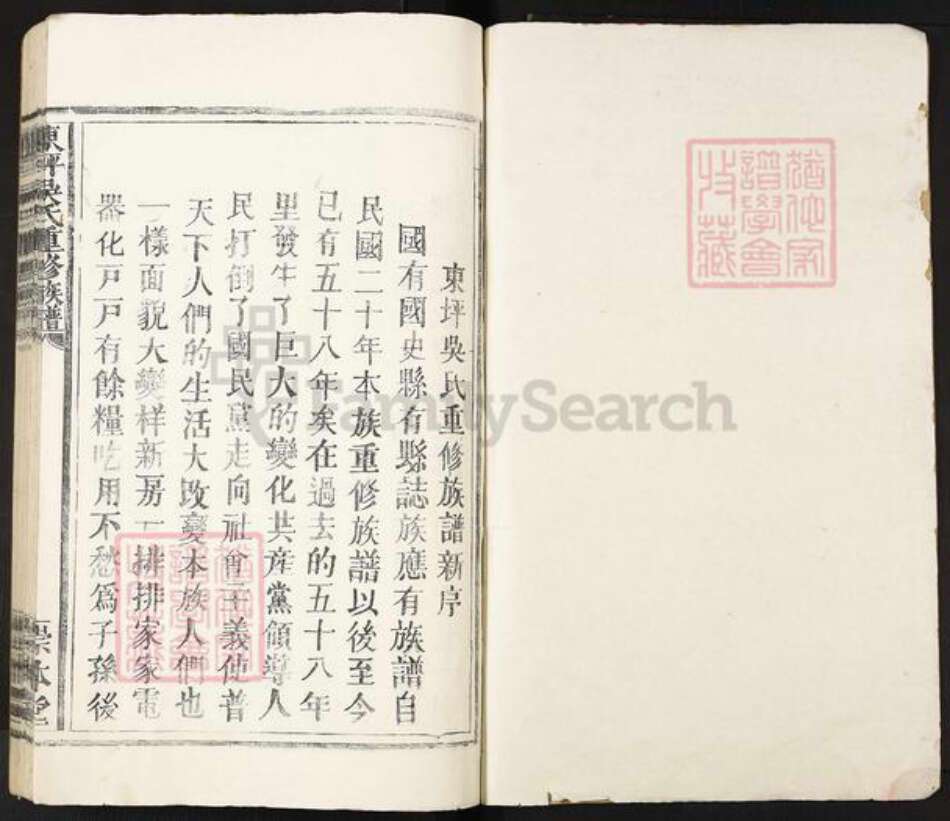 猶他家
譜學會
收藏
東坪吳氏重修族譜新序
國有國史縣有縣誌族應有族譜自
民國二十年本族重修族譜以後至今
已有五十八年矣在過去的五十八年
里發生了巨大的變化共產黨領導人
民打倒了國民黨走向社會主義使普
天下人們的生活大改變本族人們也
一樣面貌大變样新房一排排家家電
器化戸戸有餘糧吃用不愁爲子孫後
東坪吳氏重修族譜
崇本堂
FamilySearch